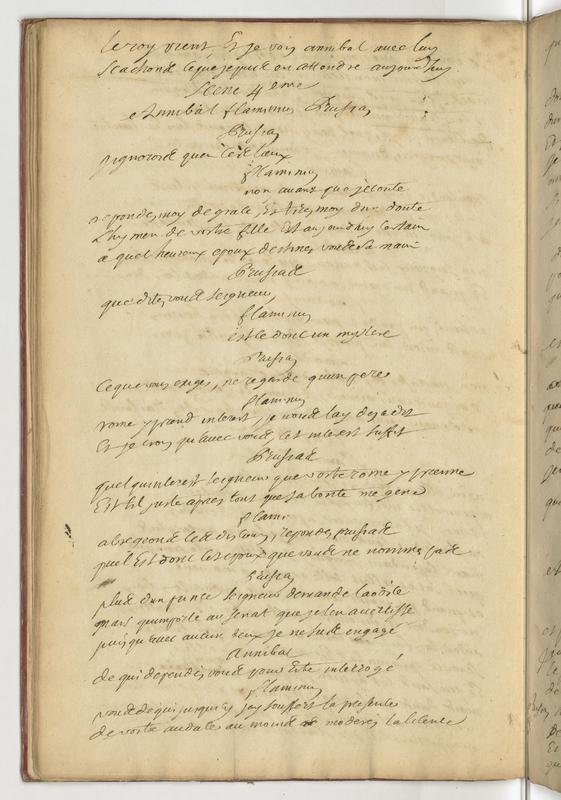 le roy vient, Et je vois annibal avec luy
scachons ce que je puis en attendre aujourd'huy
Scene 4 eme
Annibal flaminius Prusias
Prusias
j'ignorois qu'en ces lieux
flaminius
non avant que j'ecoute
repondes moy de grace, et tires moy d'un doute
L'hymen de vostre fille Est aujourd'huy certain
a quel heureux epoux destines vous sa main
Prusias
que dites vous seigneur
flaminius
est ce donc un mystere
Prusias
ce que vous exiges, ne regarde qu'un pere
flaminius
rome y prend interest, je vous l'ay deja dit
Et je crois qu'avec vous, cet interest suffit
Prusias
quelqu'interest seigneur que vostre rome y prenne
Est il juste apres tout que sa bonté me gene
flami
abregeons ces discours, repondes prusias
quel Est donc cet epoux que vous ne nommes pas
Prusias
plus d'un prince seigneur demande laodice
mais qu'importe au senat que je l'en avertisse
puis qu'avec aucun deux je ne suis engagé
Annibal
de qui dependes vous pour estre interrogé
flaminius
vous de qui jusqu'icy j'ay souffert la presence
de vostre audace au moins moderes la licence